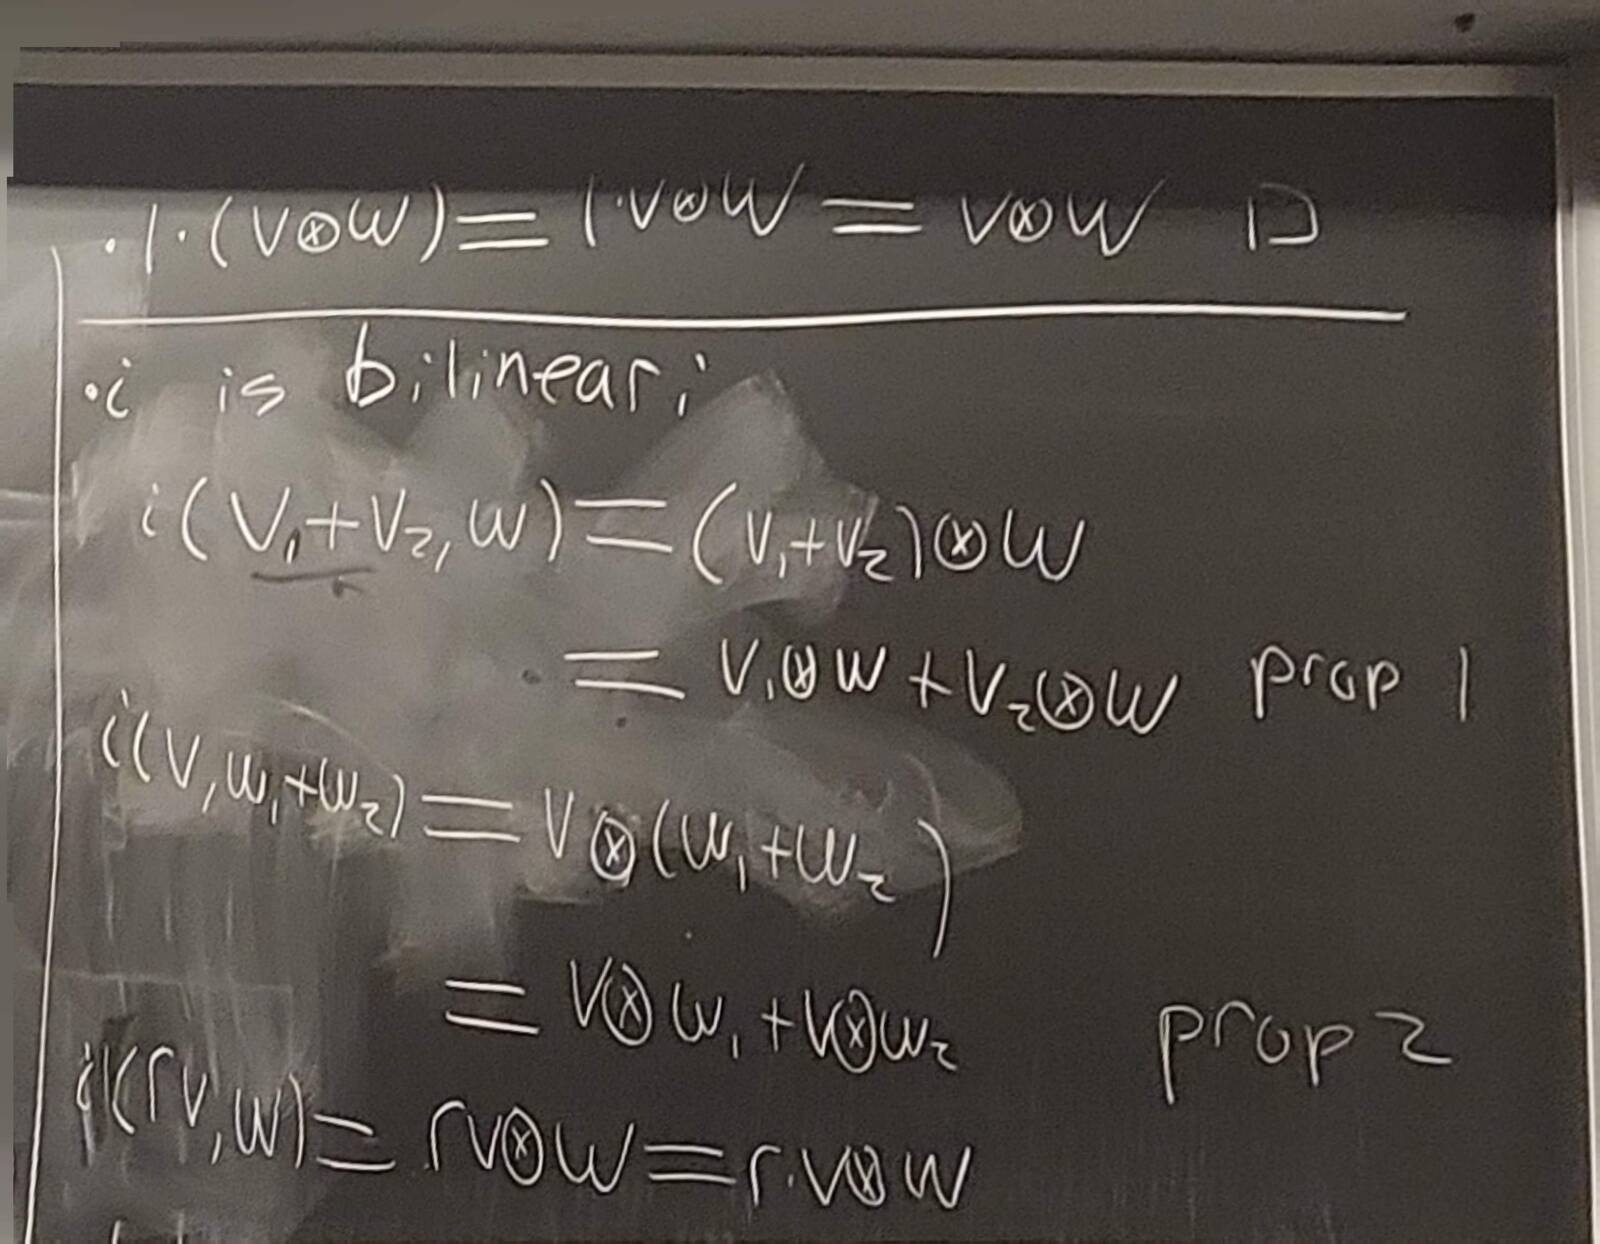 · 1 · (v⊗w) = 1·v⊗w = v⊗w □
· i is bilinear;
i(v₁+v₂,w) = (v₁+v₂)⊗w
= v₁⊗w + v₂⊗w prop 1
i(v,w₁+w₂) = v⊗(w₁+w₂)
= v⊗w₁ + v⊗w₂ prop 2
i(rv,w) = rv⊗w = r·v⊗w